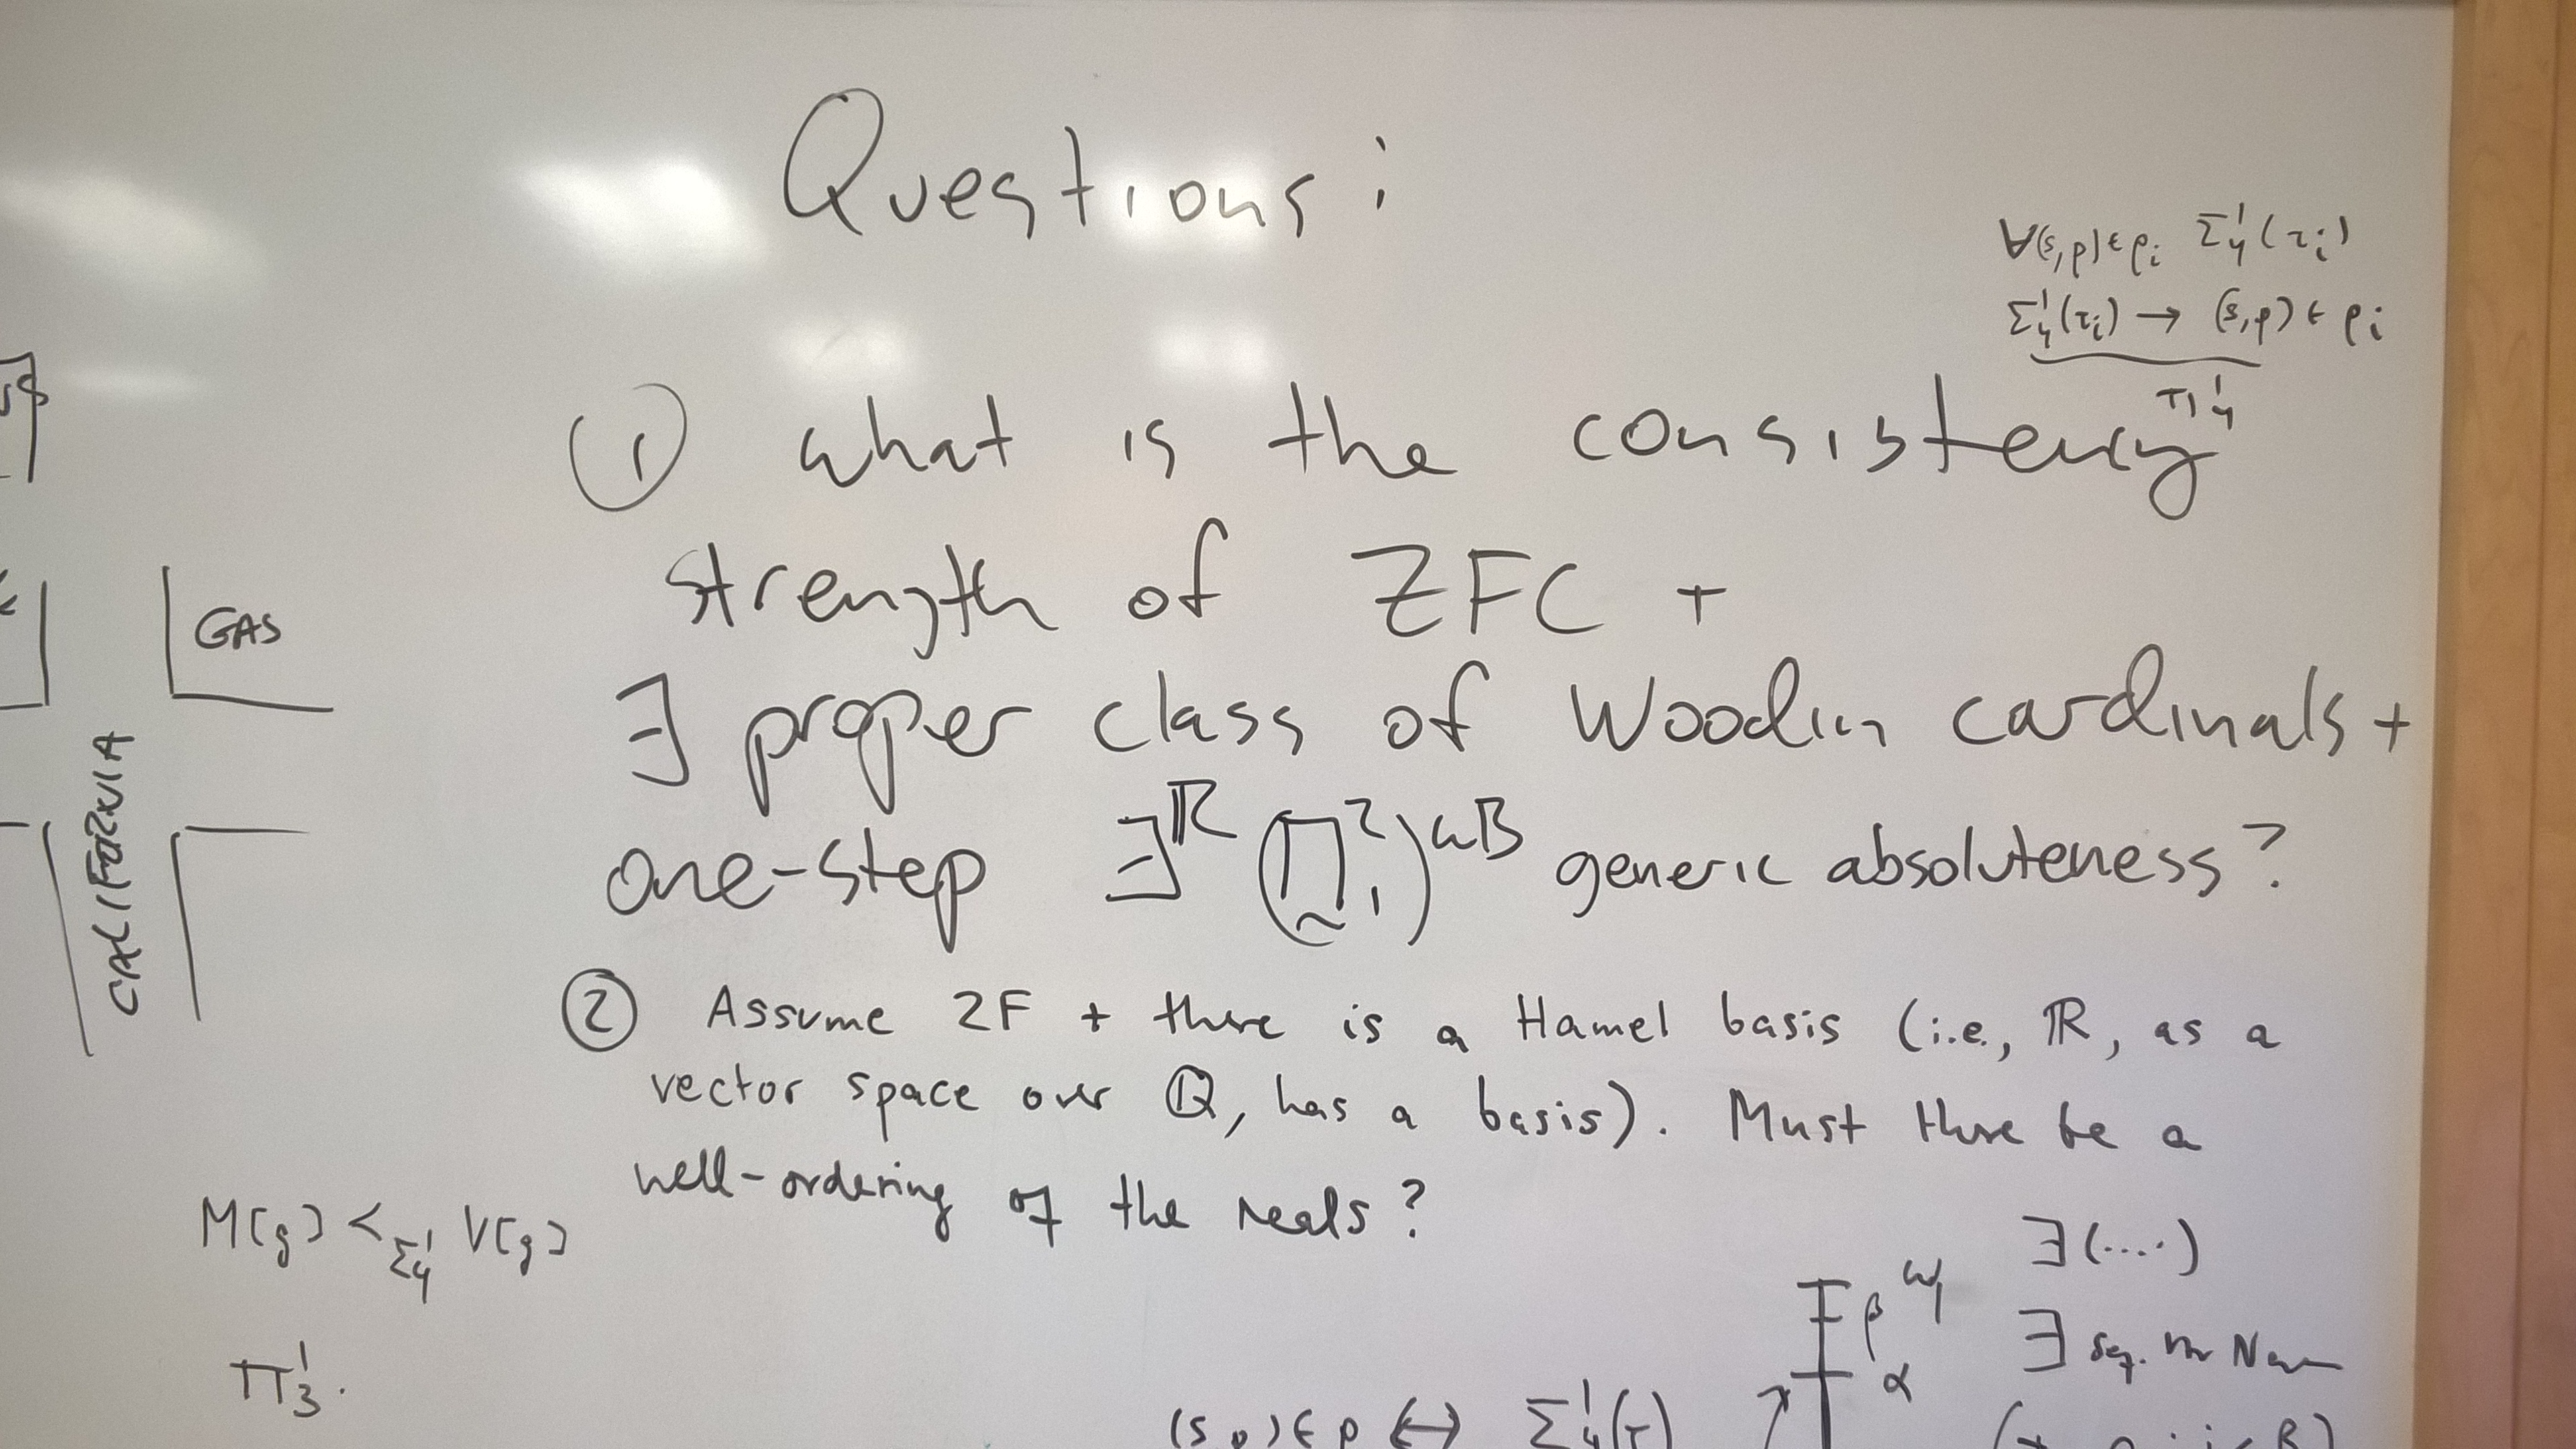 Questions:
∀(s,p)∈ρᵢ Σ¹₄(τᵢ)
Σ¹₄(τᵢ) → (s,p) ∈ ρᵢ
Π¹₄
① what is the consistency
strength of ZFC +
∃ proper class of Woodin cardinals +
one-step ∃^ℝ (Π²₁)^uB generic absoluteness?
GAS
CALIFORNIA
② Assume ZF + there is a Hamel basis (i.e., ℝ, as a
vector space over ℚ, has a basis). Must there be a
well-ordering of the reals?
M[g] <_Σ¹₄ V[g]
Π¹₃.
∃(....)
β ω₁
∃ seq.
α